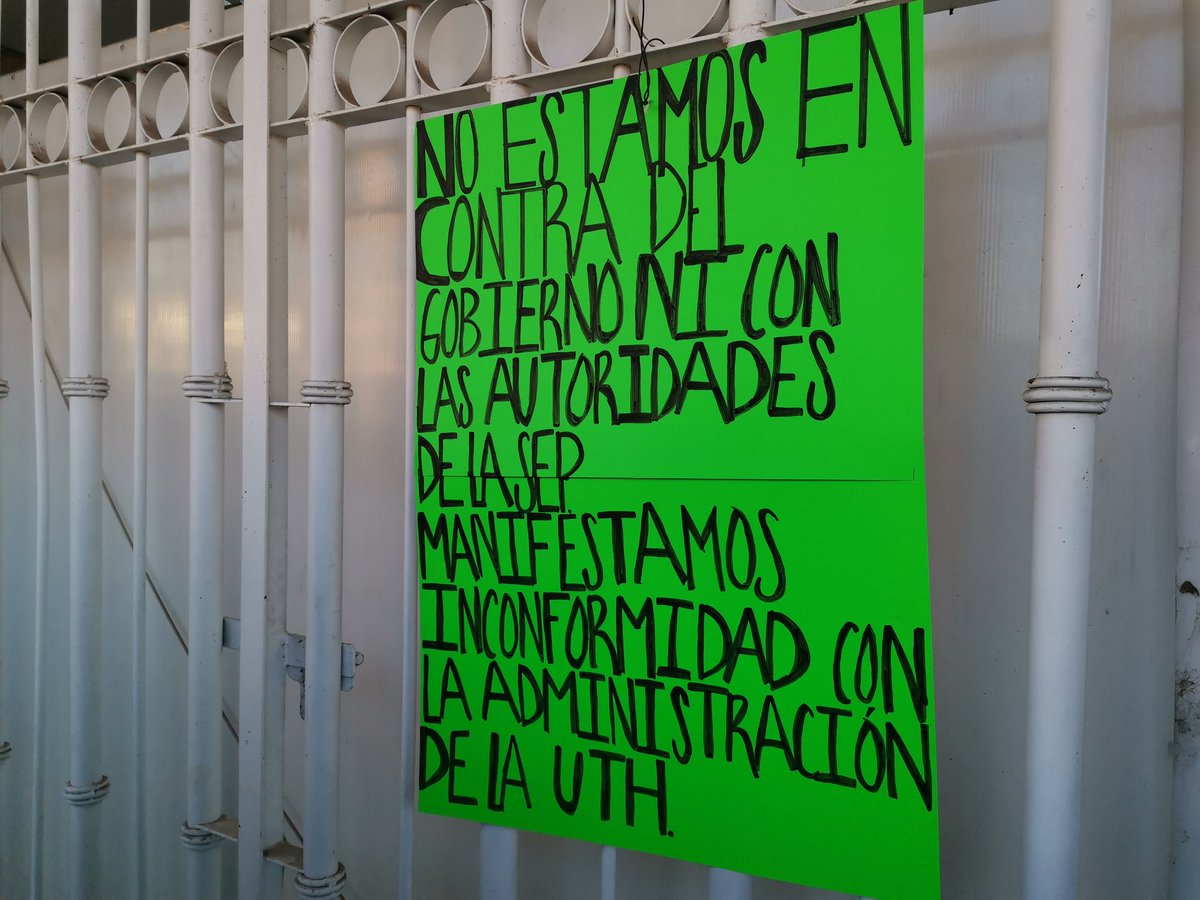 NO ESTAMOS EN
CONTRA DEL
GOBIERNO NI CON
LAS AUTORIDADES
DE LA SEP.
MANIFESTAMOS
INCONFORMIDAD CON
LA ADMINISTRACIÓN
DE LA UTH.